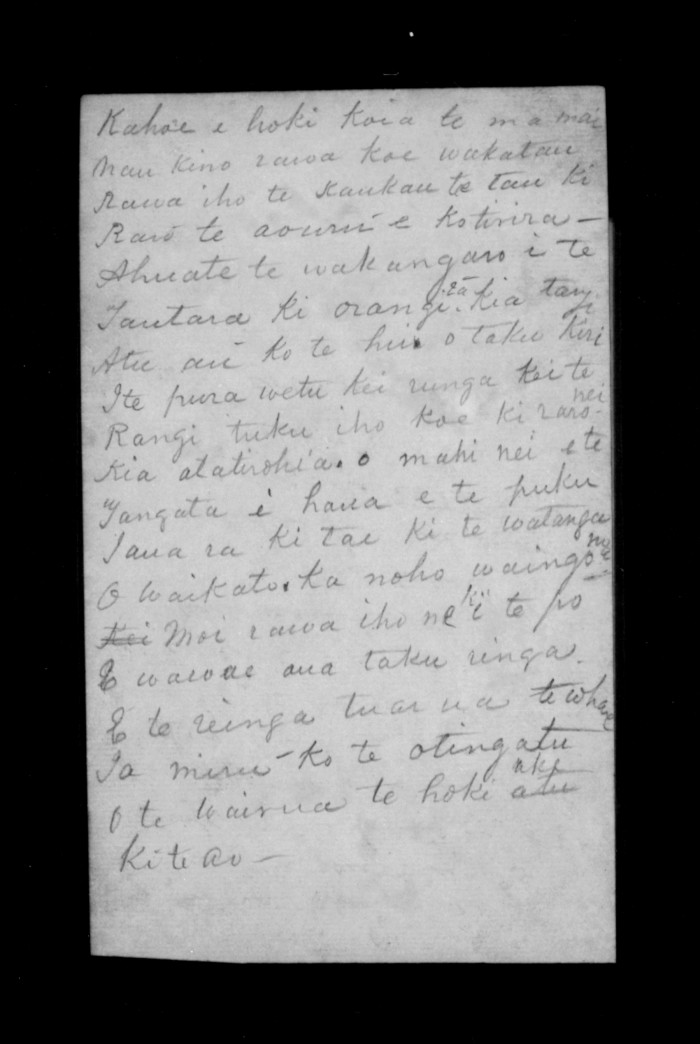 Kahoe e hoki koia te ma mai
nau kino rawa koe wakatau
Rawa iho te kaukau te tau ki
Raro te aouru e kotirira —
Ahuate te wakangaro i te
Tautara ki orangi. ra kia tangi
Atu au ko te hu. o taku kiri
Ite pura wetu kei runga kei te
Rangi tuku iho koe ki raro nei
Kia atatirohia. o mahi nei e te
Tangata i haua e te puku
Taua ra ki tae ki te watanga
O Waikato. ka noho waingo noa
Kei Moi rawa iho nei ki te po
E wawae aua taku ringa.
E te reinga tuarua te whare
Ia miru - ko te otingatu
O te Wairua te hoki atu ake
Ki te ao —